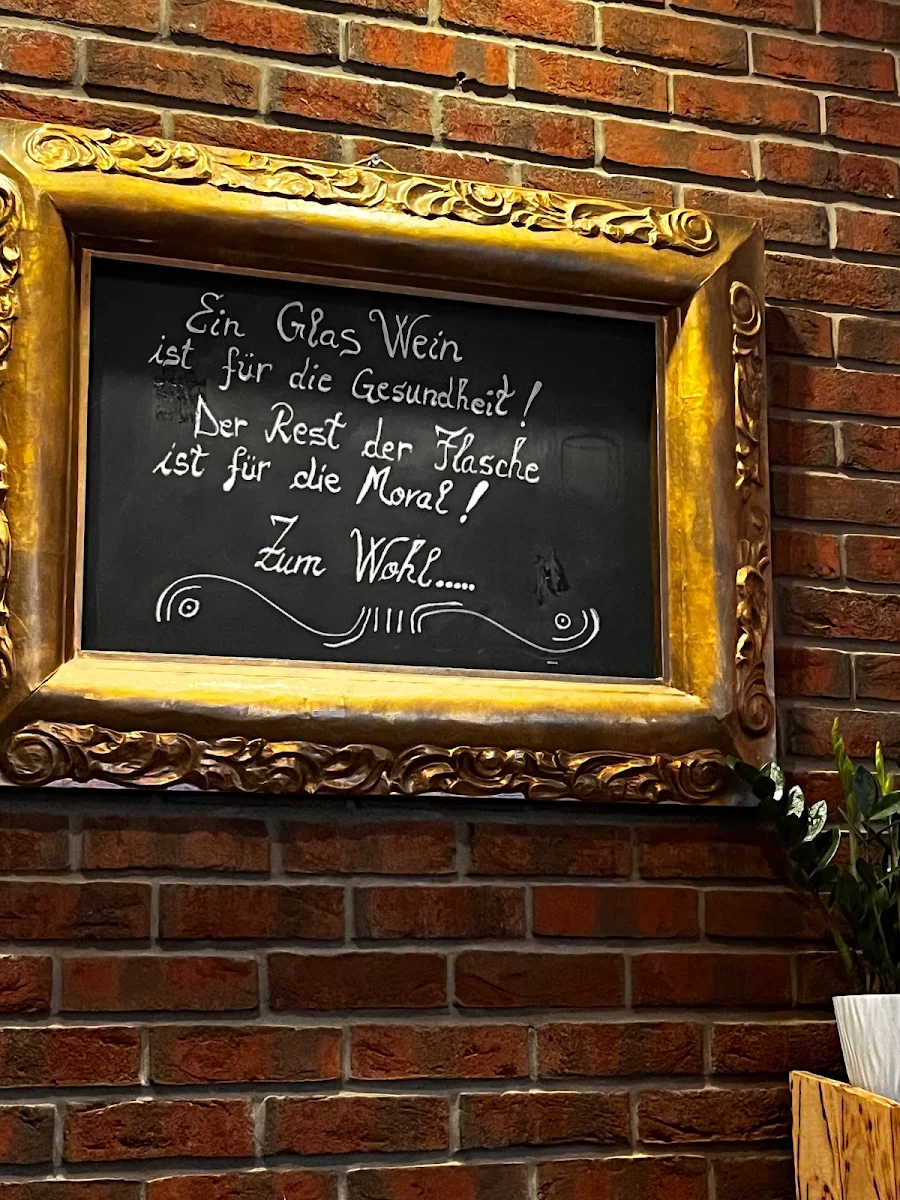 Ein Glas Wein
ist für die Gesundheit!
Der Rest der Flasche
ist für die Moral!
Zum Wohl.....